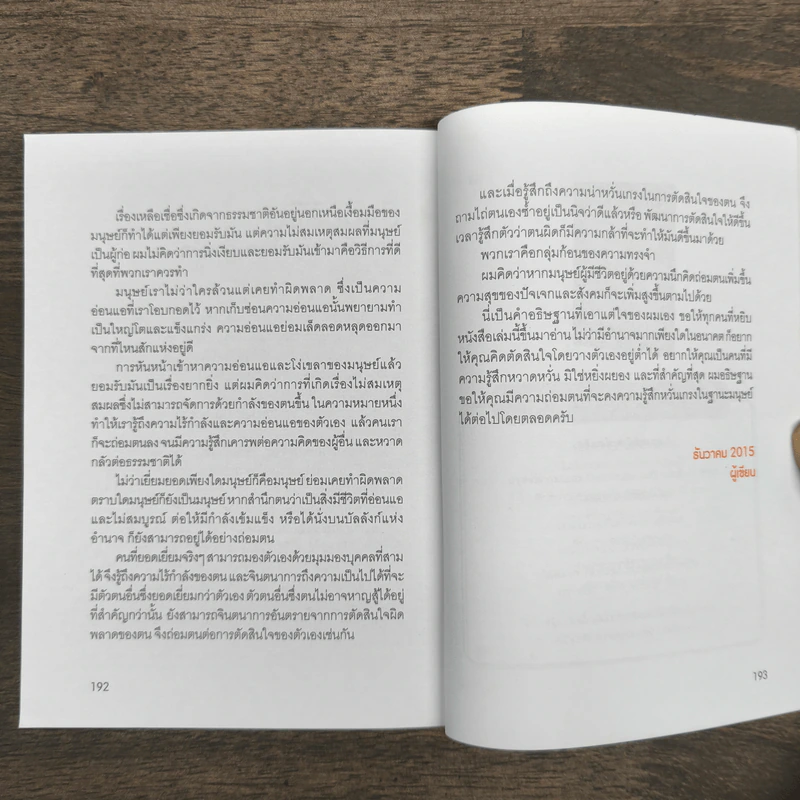 เรื่องเหลือเชื่อซึ่งเกิดจากธรรมชาติอันอยู่นอกเหนือเงื้อมมือของ
มนุษย์ก็ทำได้แต่เพียงยอมรับมัน แต่ความไม่สมเหตุสมผลที่มนุษย์
เป็นผู้ก่อ ผมไม่คิดว่าการนิ่งเงียบและยอมรับมันเข้ามาคือวิธีการที่ดี
ที่สุดที่พวกเราควรทำ
มนุษย์เราไม่ว่าใครล้วนแต่เคยทำผิดพลาด ซึ่งเป็นความ
อ่อนแอที่เราโอบกอดไว้ หากเก็บซ่อนความอ่อนแอนั้นพยายามทำ
เป็นใหญ่โตและแข็งแกร่ง ความอ่อนแอย่อมเล็ดลอดหลุดออกมา
จากที่ไหนสักแห่งอยู่ดี
การหันหน้าเข้าหาความอ่อนแอและโง่เขลาของมนุษย์แล้ว
ยอมรับมันเป็นเรื่องยากยิ่ง แต่ผมคิดว่าการที่เกิดเรื่องไม่สมเหตุ
สมผลซึ่งไม่สามารถจัดการด้วยกำลังของตนขึ้น ในความหมายหนึ่ง
ทำให้เรารู้ถึงความไร้กำลังและความอ่อนแอของตัวเอง แล้วคนเรา
ก็จะถ่อมตนลง จนมีความรู้สึกเคารพต่อความคิดของผู้อื่น และหวาด
กลัวต่อธรรมชาติได้
ไม่ว่าเยี่ยมยอดเพียงใดมนุษย์ก็คือมนุษย์ ย่อมเคยทำผิดพลาด
ตราบใดมนุษย์ก็ยังเป็นมนุษย์ หากสำนึกตนว่าเป็นสิ่งมีชีวิตที่อ่อนแอ
และไม่สมบูรณ์ ต่อให้มีกำลังเข้มแข็ง หรือได้นั่งบนบัลลังก์แห่ง
อำนาจ ก็ยังสามารถอยู่ได้อย่างถ่อมตน
คนที่ยอดเยี่ยมจริงๆ สามารถมองตัวเองด้วยมุมมองบุคคลที่สาม
ได้ จึงรู้ถึงความไร้กำลังของตน และจินตนาการถึงความเป็นไปได้ที่จะ
มีตัวตนอื่นซึ่งยอดเยี่ยมกว่าตัวเอง ตัวตนอื่นซึ่งตนไม่อาจหาญสู้ได้อยู่
ที่สำคัญกว่านั้น ยังสามารถจินตนาการอันตรายจากการตัดสินใจผิด
พลาดของตน จึงถ่อมตนต่อการตัดสินใจของตัวเองเช่นกัน
192
และเมื่อรู้สึกถึงความน่าหวั่นเกรงในการตัดสินใจของตน จึง
ถามไถ่ตนเองซ้ำอยู่เป็นนิจว่าดีแล้วหรือ พัฒนาการตัดสินใจให้ดีขึ้น
เวลารู้สึกตัวว่าตนผิดก็มีความกล้าที่จะทำให้มันดีขึ้นมาด้วย
พวกเราคือกลุ่มก้อนของความทรงจำ
ผมคิดว่าหากมนุษย์ผู้มีชีวิตอยู่ด้วยความนึกคิดถ่อมตนเพิ่มขึ้น
ความสุขของปัจเจกและสังคมก็จะเพิ่มสูงขึ้นตามไปด้วย
นี่เป็นคำอธิษฐานที่เอาแต่ใจของผมเอง ขอให้ทุกคนที่หยิบ
หนังสือเล่มนี้ขึ้นมาอ่าน ไม่ว่ามีอำนาจมากเพียงใดในอนาคต ก็อยาก
ให้คุณคิดตัดสินใจโดยวางตัวเองอยู่ต่ำได้ อยากให้คุณเป็นคนที่มี
ความรู้สึกหวาดหวั่น มิใช่หยิ่งผยอง และที่สำคัญที่สุด ผมอธิษฐาน
ขอให้คุณมีความถ่อมตนที่จะคงความรู้สึกหวั่นเกรงในฐานะมนุษย์
ได้ต่อไปโดยตลอดครับ
ธันวาคม 2015
ผู้เขียน
193